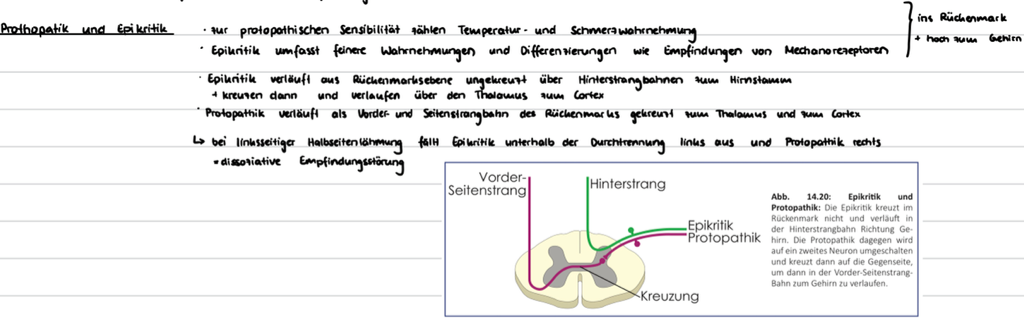 Prothopatik und Epikritik
· zur protopathischen Sensibilität zählen Temperatur- und Schmerzwahrnehmung
· Epikritik umfasst feinere Wahrnehmungen und Differenzierungen wie Empfindungen von Mechanorezeptoren
ins Rückenmark
+ hoch zum Gehirn
· Epikritik verläuft aus Rückenmarksebene ungekreuzt über Hinterstrangbahnen zum Hirnstamm
+ kreuzen dann und verlaufen über den Thalamus zum Cortex
· Protopathik verläuft als Vorder- und Seitenstrangbahn des Rückenmarks gekreuzt zum Thalamus und zum Cortex
↳ bei linksseitiger Halbseitenlähmung fällt Epikritik unterhalb der Durchtrennung links aus und Protopathik rechts
= dissoziative Empfindungsstörung
Vorder-
Seitenstrang
Hinterstrang
Epikritik
Protopathik
Kreuzung
Abb. 14.20: Epikritik und
Protopathik: Die Epikritik kreuzt im
Rückenmark nicht und verläuft in
der Hinterstrangbahn Richtung Ge-
hirn. Die Protopathik dagegen wird
auf ein zweites Neuron umgeschalten
und kreuzt dann auf die Gegenseite,
um dann in der Vorder-Seitenstrang-
Bahn zum Gehirn zu verlaufen.